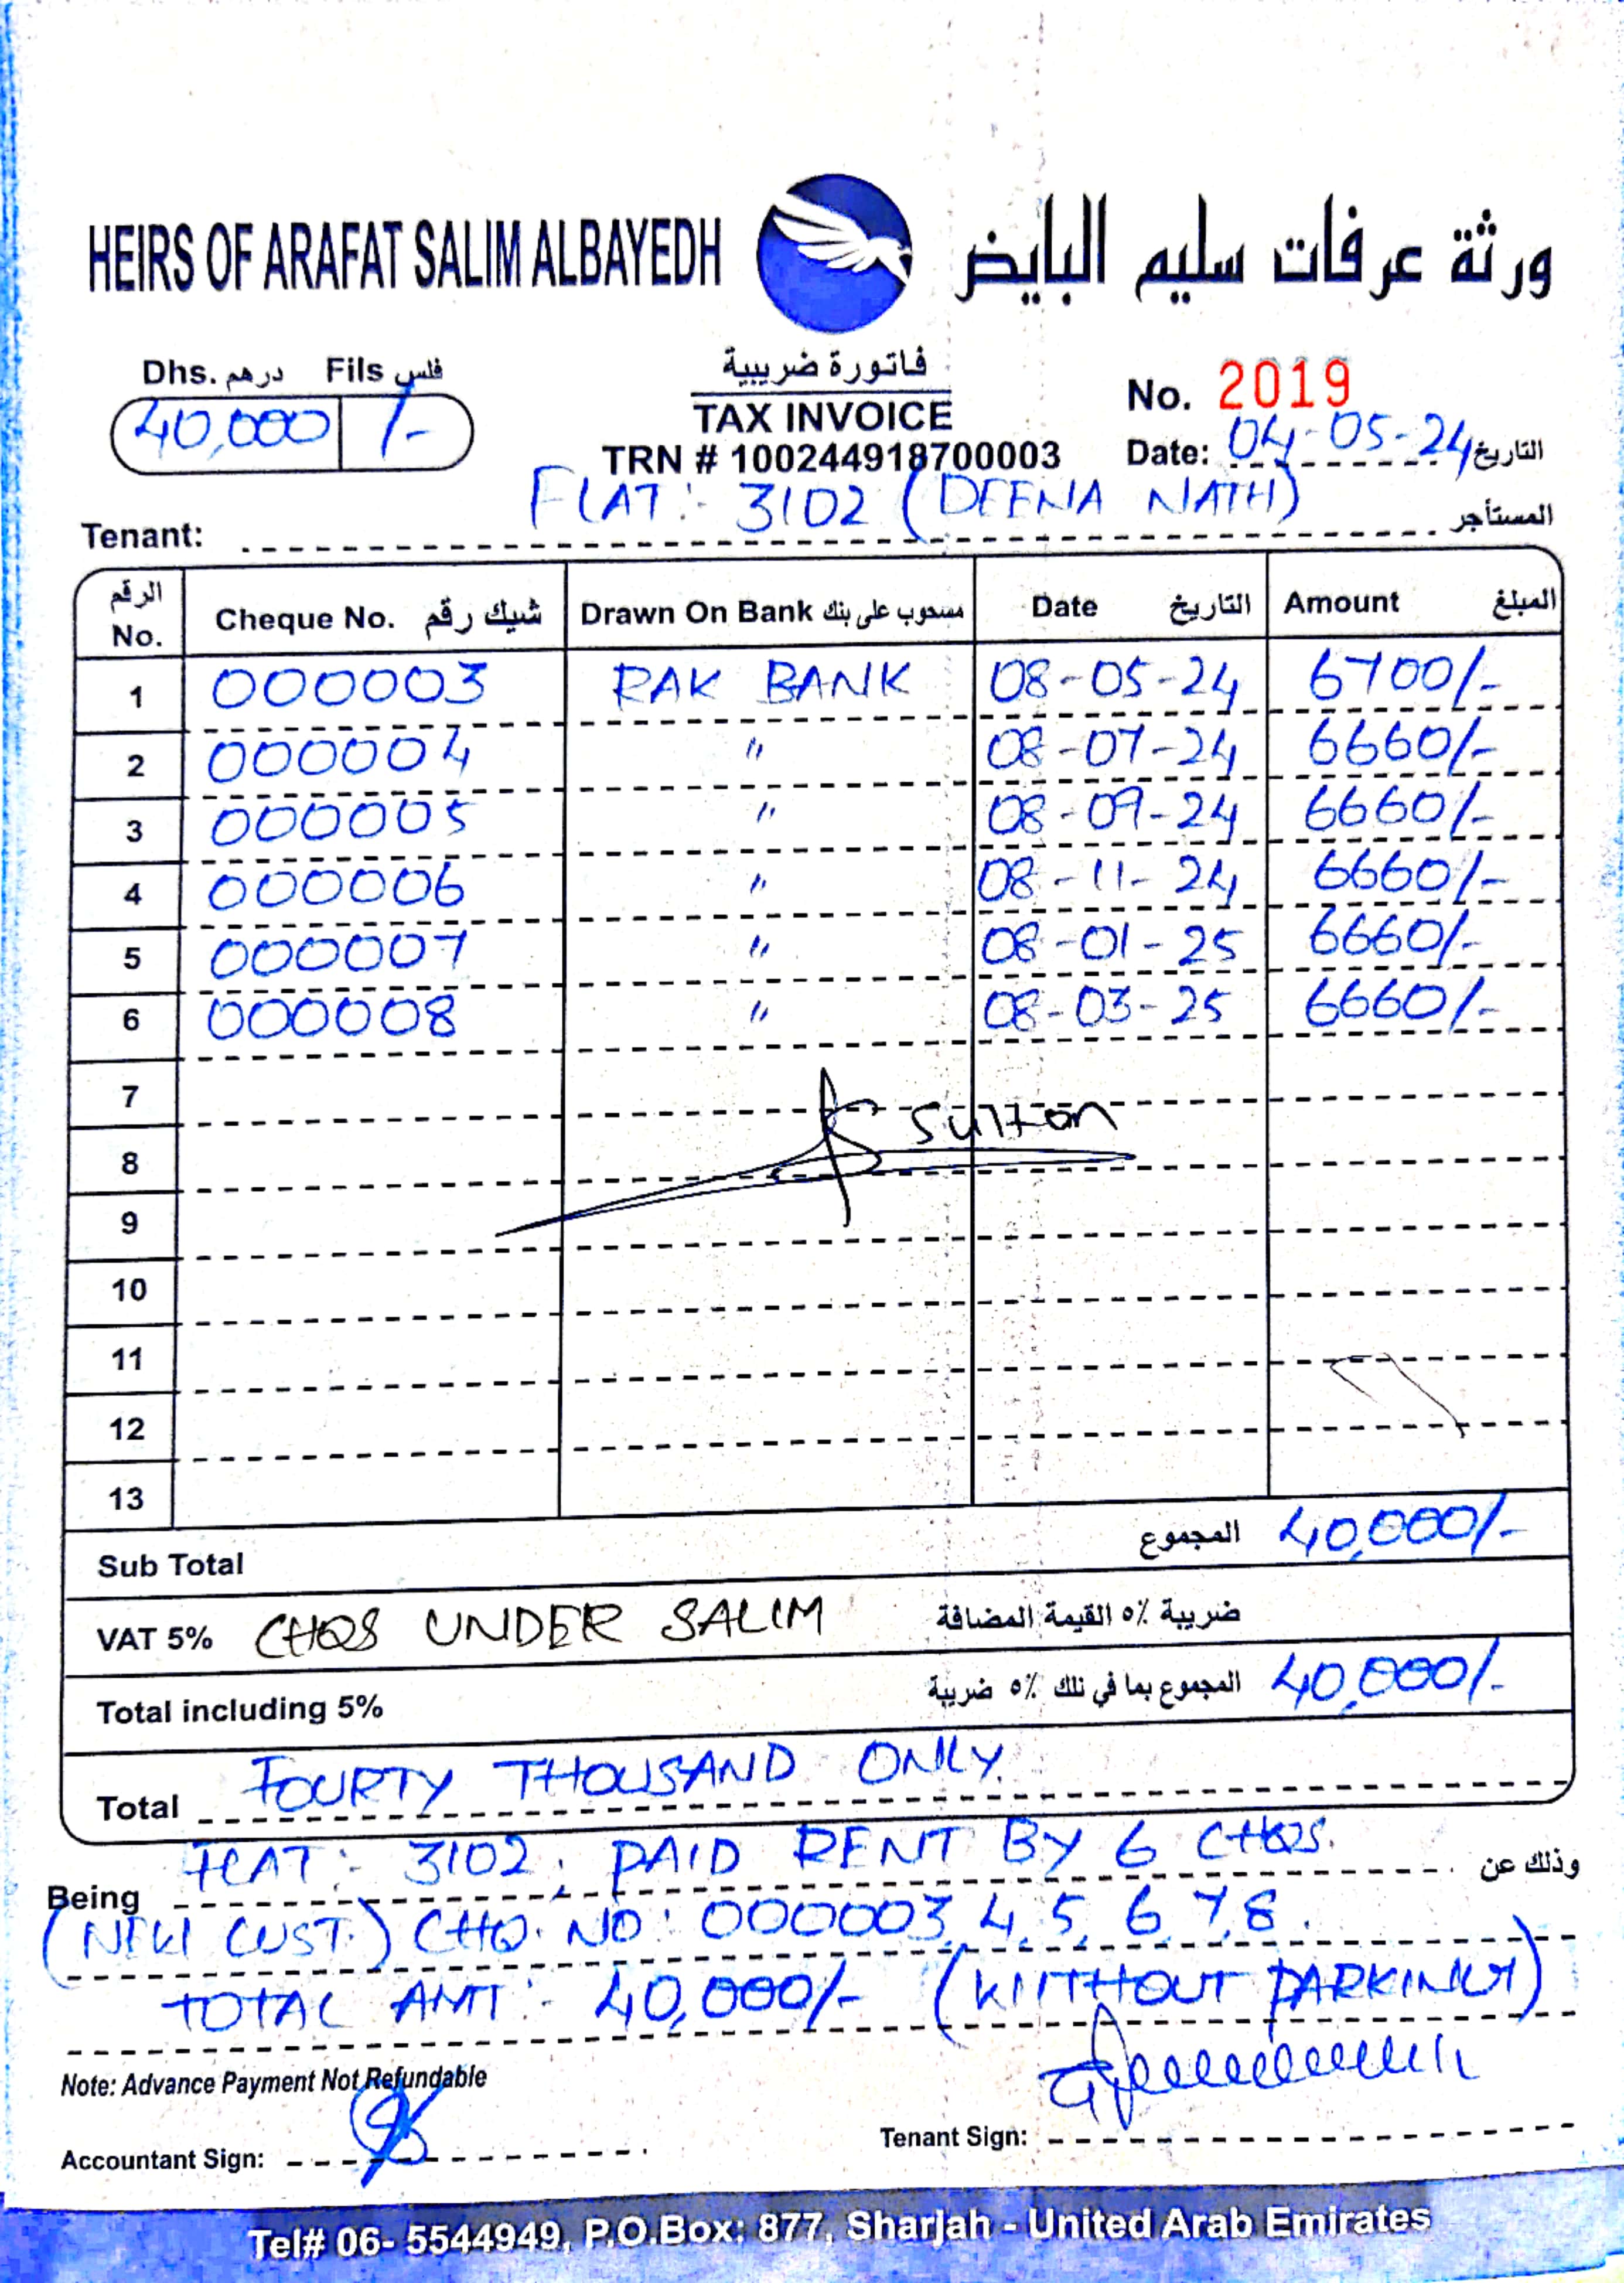 HEIRS OF ARAFAT SALIM ALBAYEDH ورثة عرفات سليم البايض
Dhs. درهم Fils فلس
40,000 /-
فاتورة ضريبية
TAX INVOICE
TRN # 100244918700003
No. 2019
Date: 04-05-24 التاريخ
Tenant: FLAT:- 3102 (DEENA NATH) المستأجر
الرقم No. Cheque No. شيك رقم Drawn On Bank مسحوب على بنك Date التاريخ Amount المبلغ
1 000003 RAK BANK 08-05-24 6700/-
2 000004 " 08-07-24 6660/-
3 000005 " 08-09-24 6660/-
4 000006 " 08-11-24 6660/-
5 000007 " 08-01-25 6660/-
6 000008 " 08-03-25 6660/-
7
Sultan
8
9
10
11
12
13
Sub Total المجموع 40,000/-
VAT 5% CHQS UNDER SALIM ضريبة ٥٪ القيمة المضافة
Total including 5% المجموع بما في ذلك ٥٪ ضريبة 40,000/-
Total FOURTY THOUSAND ONLY.
Being FLAT:- 3102, PAID RENT BY 6 CHQS. وذلك عن
(NEW CUST.) CHQ. NO: 000003,4,5,6,7,8.
TOTAL AMT:- 40,000/- (WITHOUT PARKING)
Note: Advance Payment Not Refundable
Accountant Sign:
Tenant Sign:
Tel# 06- 5544949, P.O.Box: 877, Sharjah - United Arab Emirates